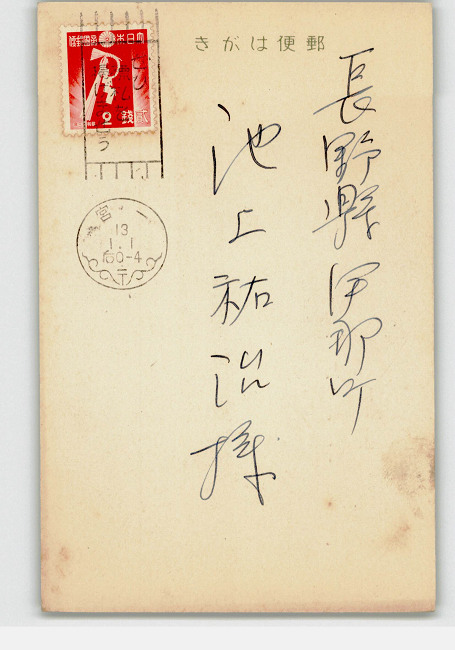 きがは便郵
長野縣伊那町
池上祐治様
大日本帝國郵便
貳銭
宮
13
1.1
后0-4